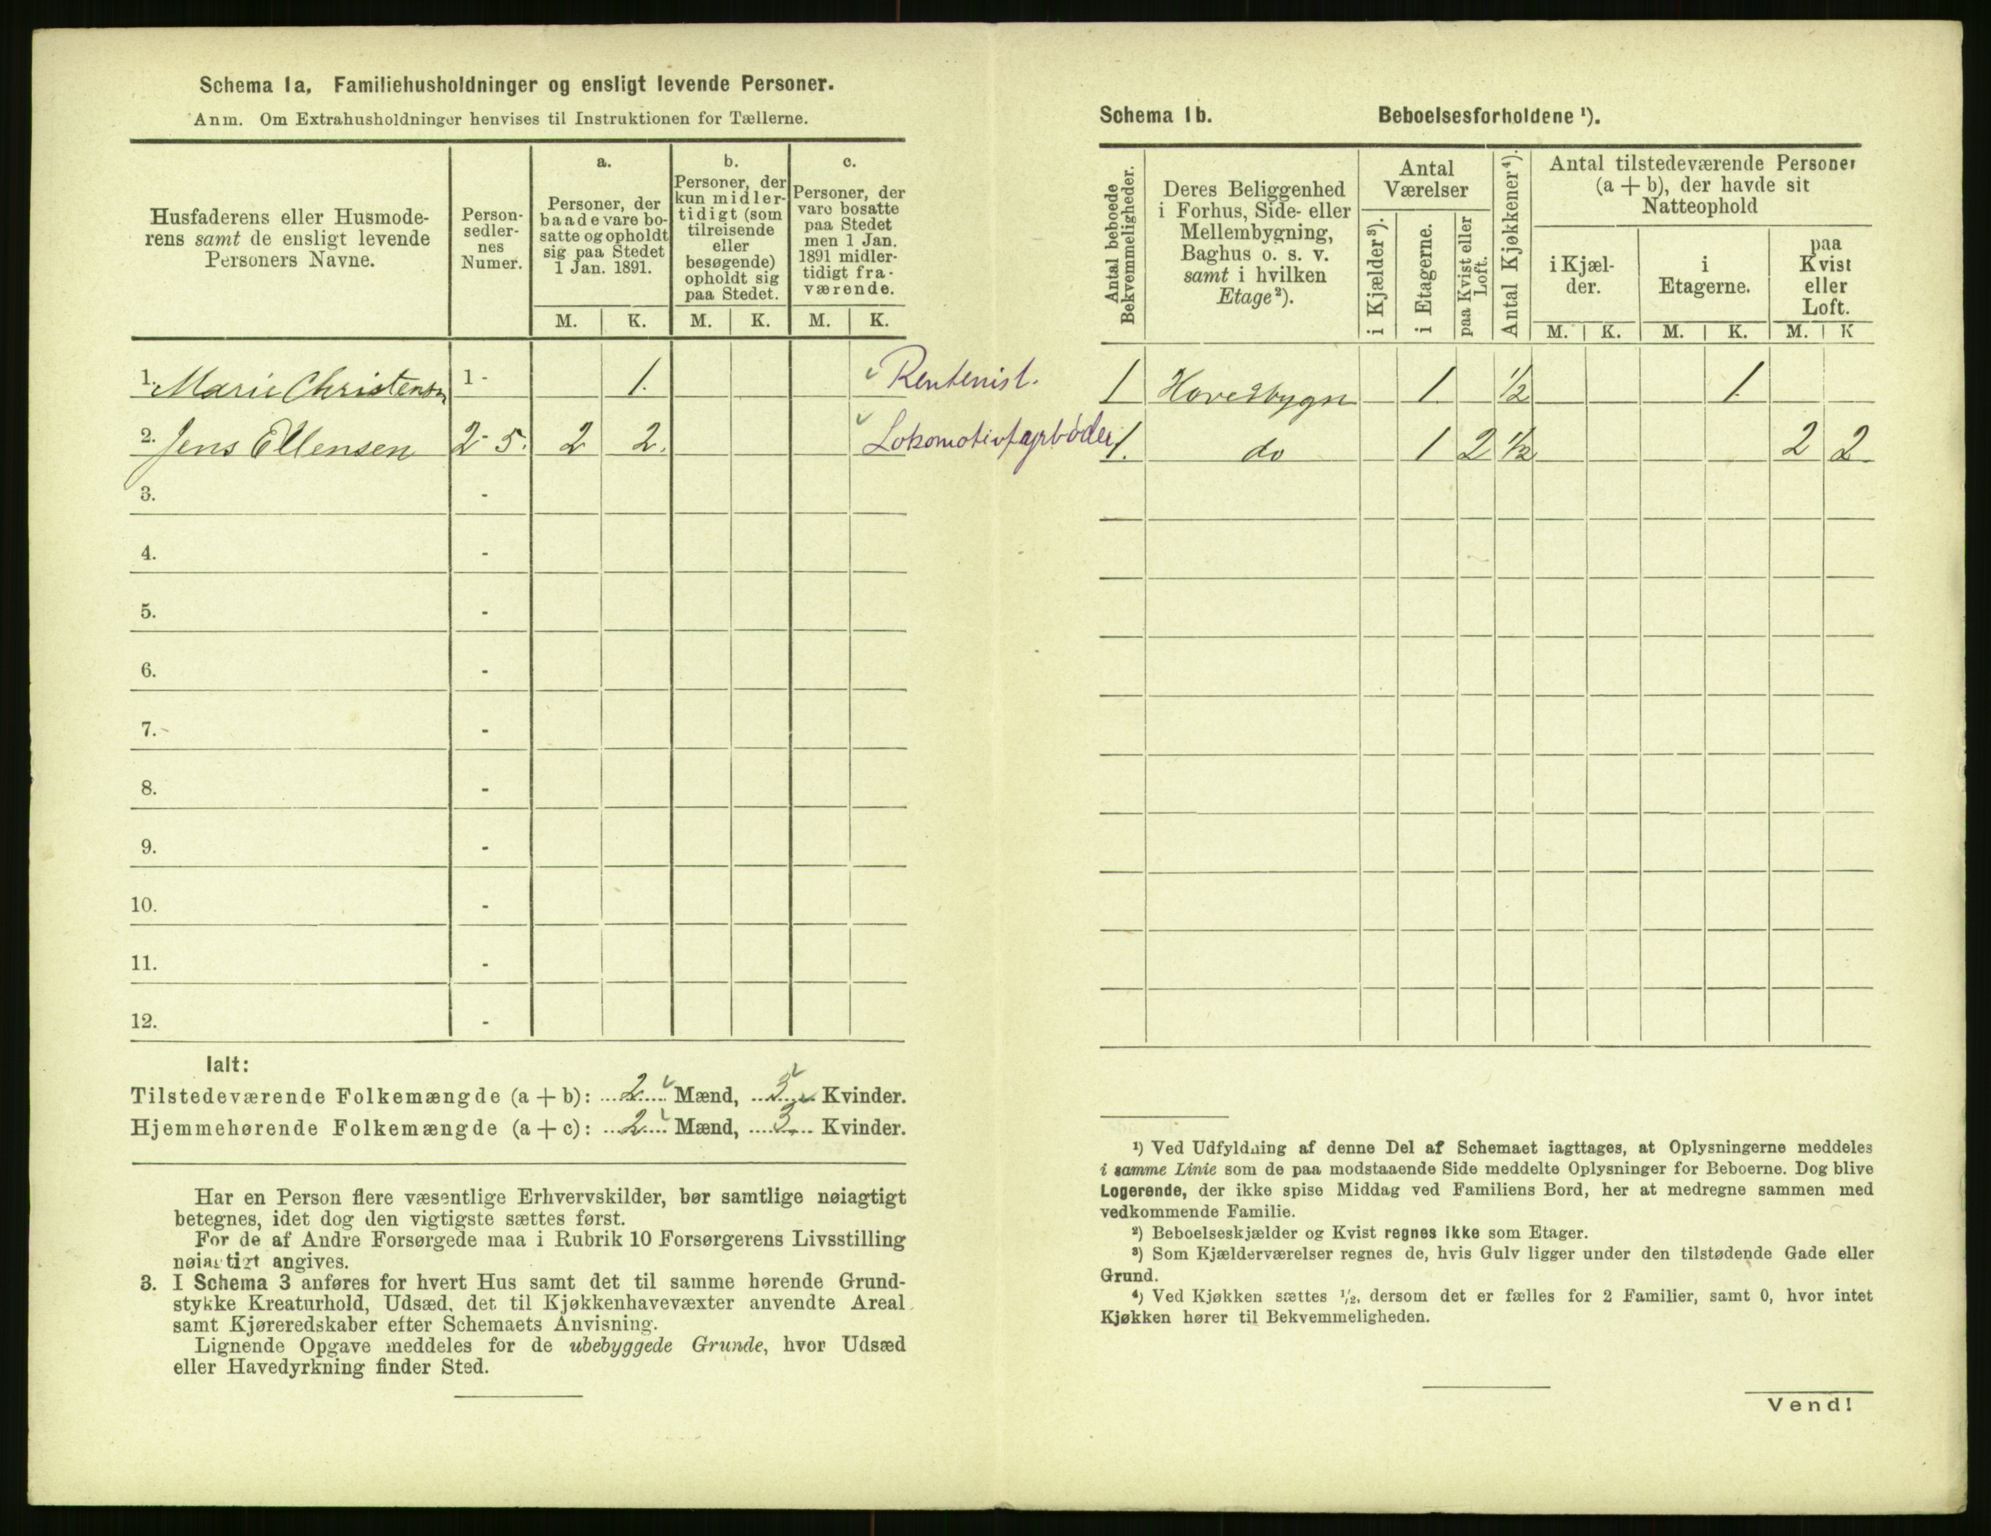 Schema 1a. Familiehusholdninger og ensligt levende Personer.
Anm. Om Extrahusholdninger henvises til Instruktionen for Tællerne.
Husfaderens eller Husmode-
rens samt de ensligt levende
Personers Navne.
Person-
sedler-
nes
Numer.
a.
Personer, der
baade vare bo-
satte og opholdt
sig paa Stedet
1 Jan. 1891.
b.
Personer, der
kun midler-
tidigt (som
tilreisende
eller
besøgende)
opholdt sig
paa Stedet.
c.
Personer, der
vare bosatte
paa Stedet
men 1 Jan.
1891 midler-
tidigt fra-
værende.
M. K. M. K. M. K.
1. Marie Christensen 1 - 1. Rentenist.
2. Jens Ellensen 2 - 5. 2 2. Lokomotivfyrbøder
3. -
4. -
5. -
6. -
7. -
8. -
9. -
10. -
11. -
12. -
Ialt:
Tilstedeværende Folkemængde (a + b): 2 Mænd, 3 Kvinder.
Hjemmehørende Folkemængde (a + c): 2 Mænd, 3 Kvinder.
Har en Person flere væsentlige Erhvervskilder, bør samtlige nøiagtigt
betegnes, idet dog den vigtigste sættes først.
For de af Andre Forsørgede maa i Rubrik 10 Forsørgerens Livsstilling
nøiagtigt angives.
3. I Schema 3 anføres for hvert Hus samt det til samme hørende Grund-
stykke Kreaturhold, Udsæd, det til Kjøkkenhavevæxter anvendte Areal
samt Kjøreredskaber efter Schemaets Anvisning.
Lignende Opgave meddeles for de ubebyggede Grunde, hvor Udsæd
eller Havedyrkning finder Sted.
Schema 1b. Beboelsesforholdene ¹).
Antal beboede
Bekvemmeligheder.
Deres Beliggenhed
i Forhus, Side- eller
Mellembygning,
Baghus o. s. v.
samt i hvilken
Etage²).
Antal
Værelser
i Kjælder³).
i Etagerne.
paa Kvist eller
Loft.
Antal Kjøkkener⁴).
Antal tilstedeværende Personer
(a + b), der havde sit
Natteophold
i Kjæl-
der.
i
Etagerne.
paa
Kvist
eller
Loft.
M. K. M. K. M. K
1 Hovedbygn 1 ½ 1.
1. do 1 2 ½ 2 2
¹) Ved Udfyldning af denne Del af Schemaet iagttages, at Oplysningerne meddeles
i samme Linie som de paa modstaaende Side meddelte Oplysninger for Beboerne. Dog blive
Logerende, der ikke spise Middag ved Familiens Bord, her at medregne sammen med
vedkommende Familie.
²) Beboelseskjælder og Kvist regnes ikke som Etager.
³) Som Kjælderværelser regnes de, hvis Gulv ligger under den tilstødende Gade eller
Grund.
⁴) Ved Kjøkken sættes ½, dersom det er fælles for 2 Familier, samt 0, hvor intet
Kjøkken hører til Bekvemmeligheden.
Vend!